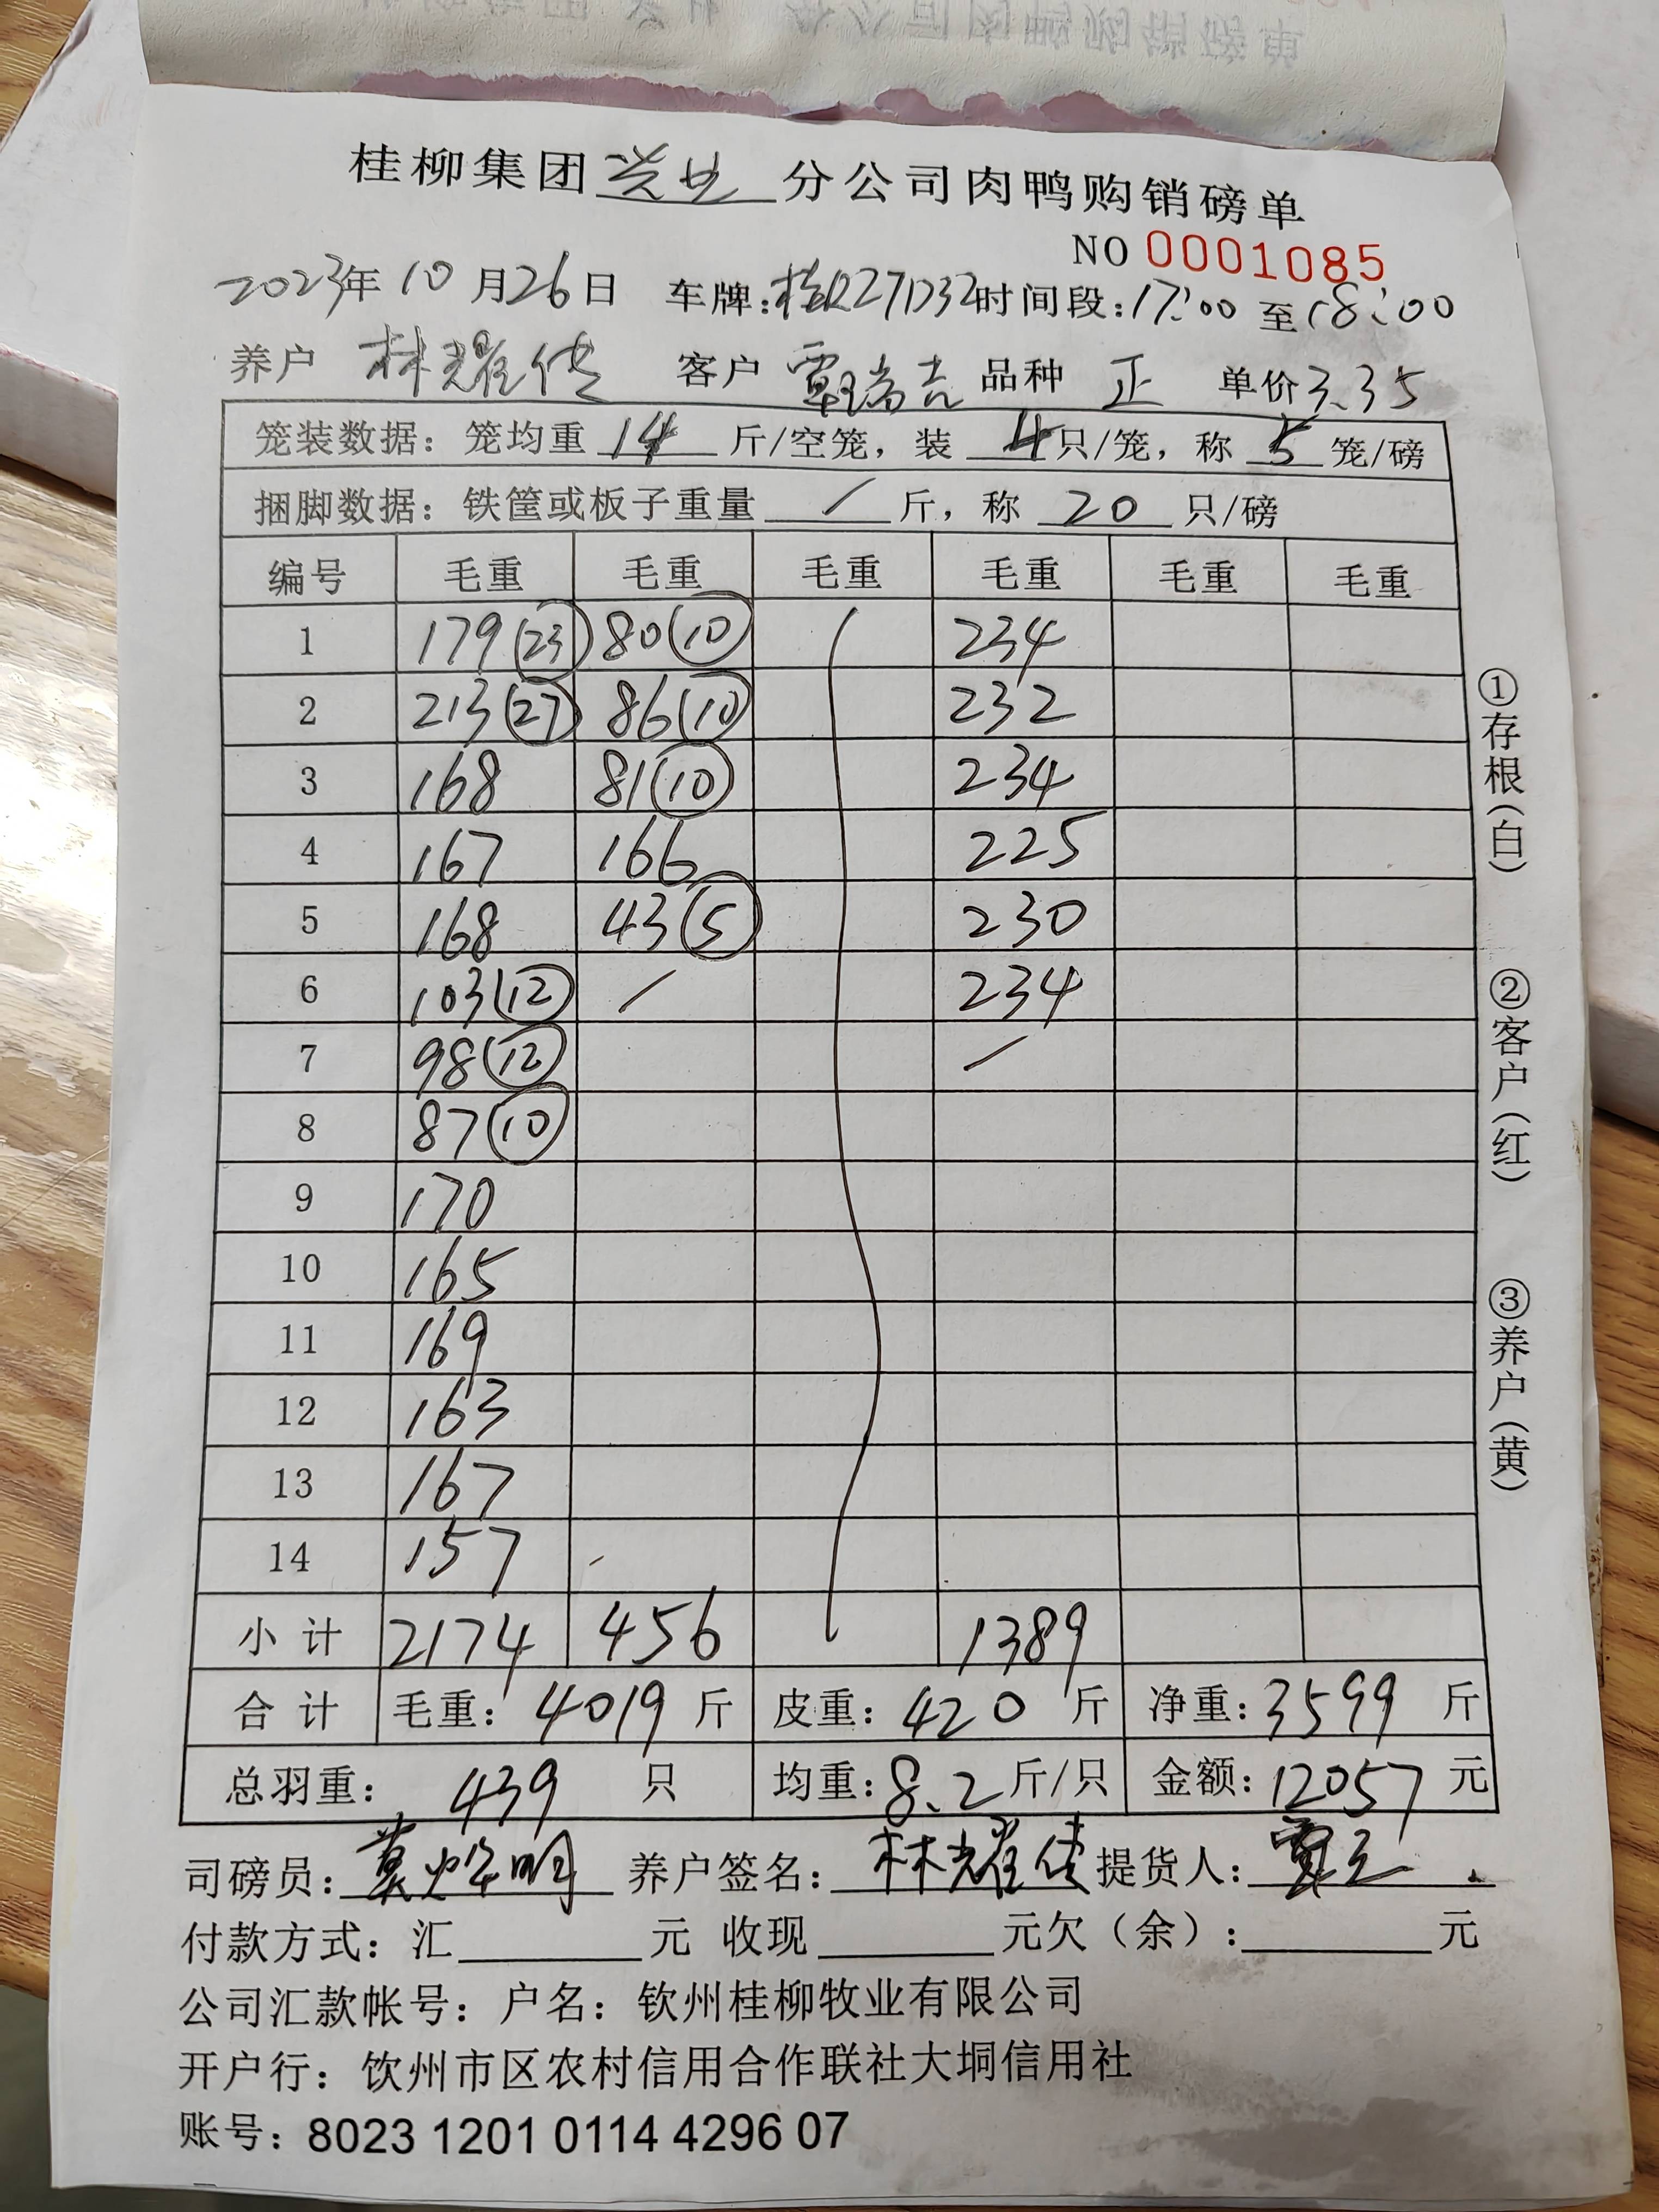 桂柳集团兴业分公司肉鸭购销磅单
NO 0001085
2023年10月26日 车牌:桂R271732时间段:17:00至18:00
养户 林耀传 客户 覃瑞吉 品种 正 单价3.35
笼装数据：笼均重 14 斤/空笼，装 4只/笼，称 5 笼/磅
捆脚数据：铁筐或板子重量 / 斤，称 20 只/磅
编号 毛重 毛重 毛重 毛重 毛重 毛重
1 179(23) 80(10) 234
2 213(27) 86(10) 232
3 168 81(10) 234
4 167 166 225
5 168 43(5) 230
6 103(12) / 234
7 98(12) /
8 87(10)
9 170
10 165
11 169
12 163
13 167
14 157
小计 2174 456 1389
合计 毛重：4019斤 皮重：420斤 净重：3599斤
总羽重：439只 均重：8.2斤/只 金额：12057元
司磅员：黄烨明 养户签名：林耀传 提货人：覃
付款方式：汇 元 收现 元欠（余）： 元
公司汇款帐号：户名：钦州桂柳牧业有限公司
开户行：钦州市区农村信用合作联社大垌信用社
账号：8023 1201 0114 4296 07
①存根（白）
②客户（红）
③养户（黄）